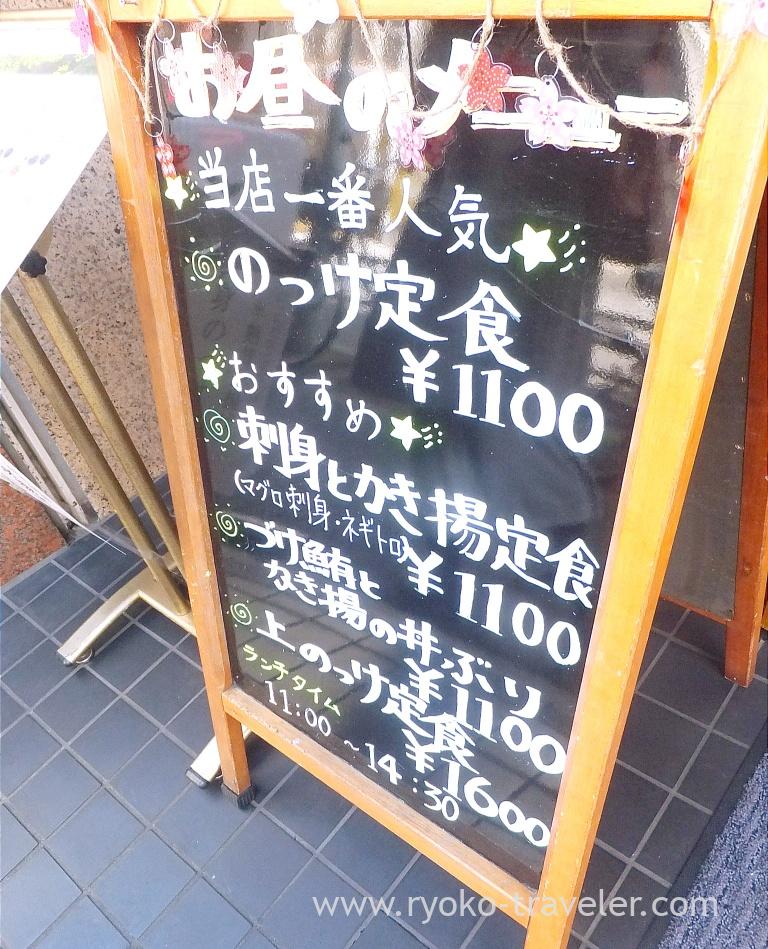 お昼のメニュー
当店一番人気
のっけ定食
¥1100
おすすめ
刺身とかき揚定食
(マグロ刺身・ネギトロ)
¥1100
づけ鮪と
かき揚の丼ぶり
¥1100
上のっけ定食
¥1600
ランチタイム
11:00 ~ 14:30
www.ryoko-traveler.com